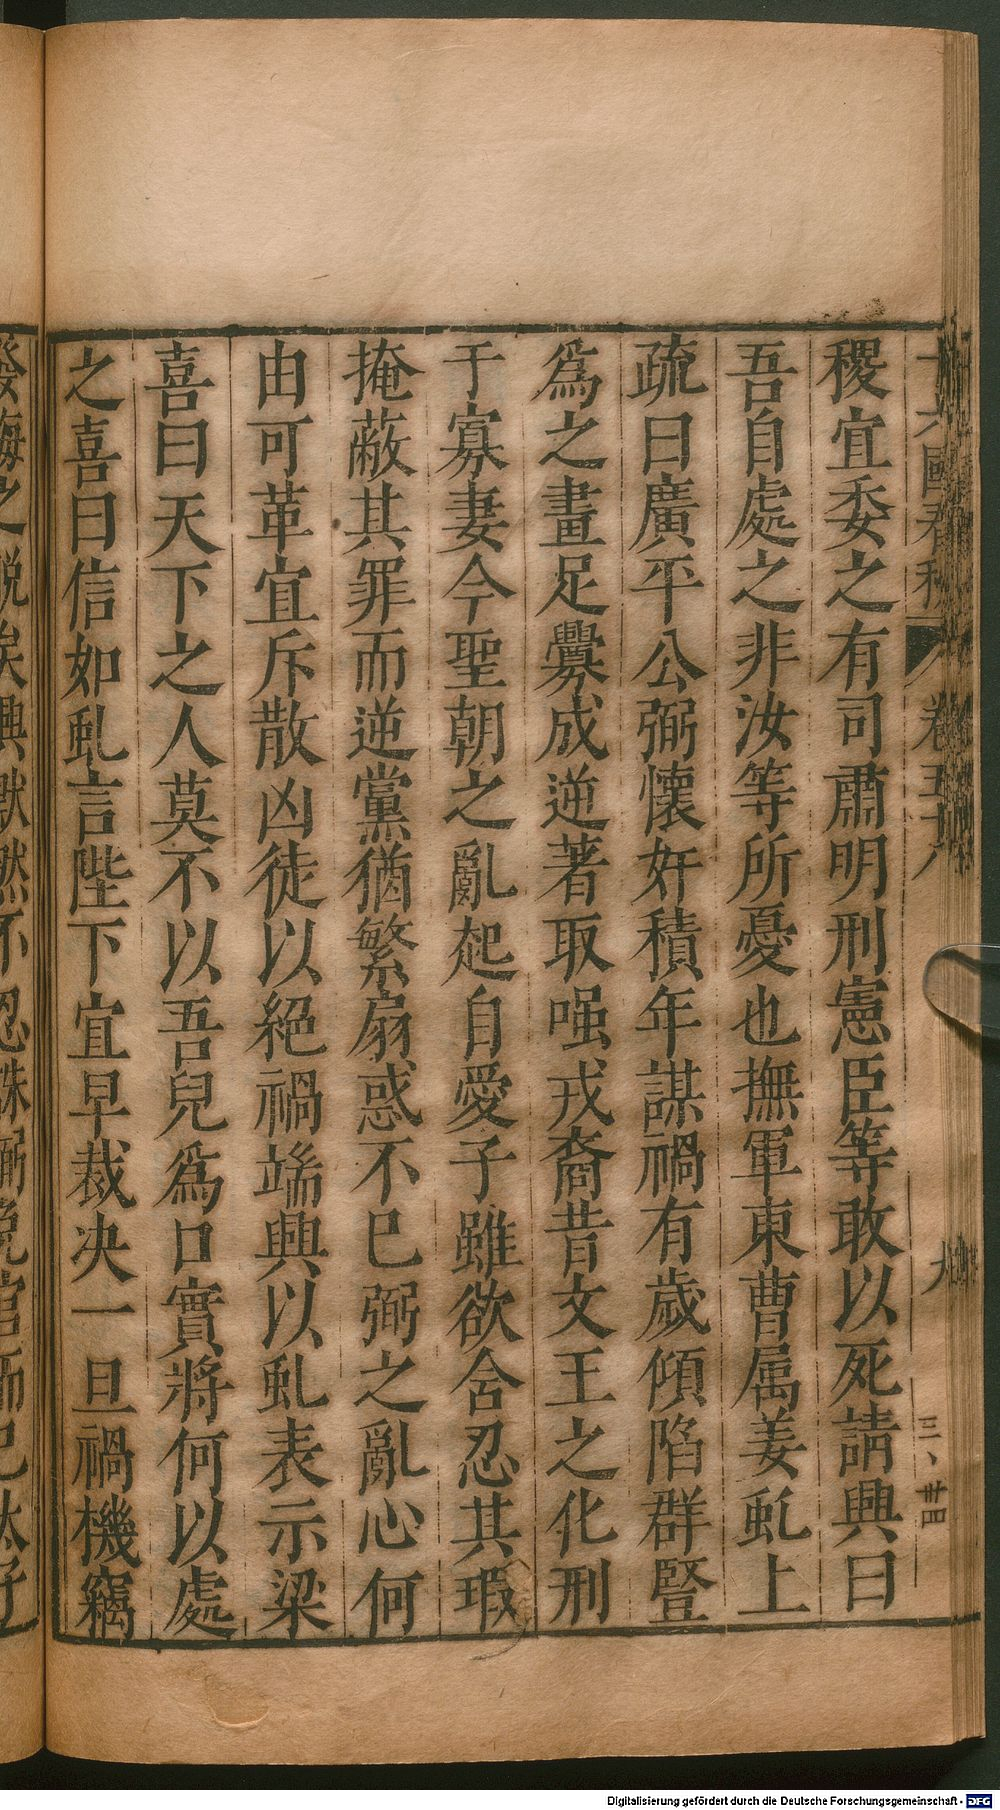 十六國春秋 卷五十八 九 三、廿四
稷宜委之有司肅明刑憲臣等敢以死請興曰
吾自處之非汝等所憂也撫軍東曹属姜虬上
疏曰廣平公弼懷奸積年謀禍有歲傾陷群豎
爲之畫足釁成逆著取嗤戎裔昔文王之化刑
于寡妻今聖朝之亂起自愛子雖欲含忍其瑕
掩蔽其罪而逆黨猶繁扇惑不巳弼之亂心何
由可革宜斥散凶徒以絕禍端興以虬表示梁
喜曰天下之人莫不以吾兒爲口實將何以處
之喜曰信如虬言陛下宜早裁决一旦禍機竊
發悔之
Digitalisierung gefördert durch die Deutsche Forschungsgemeinschaft - DFG